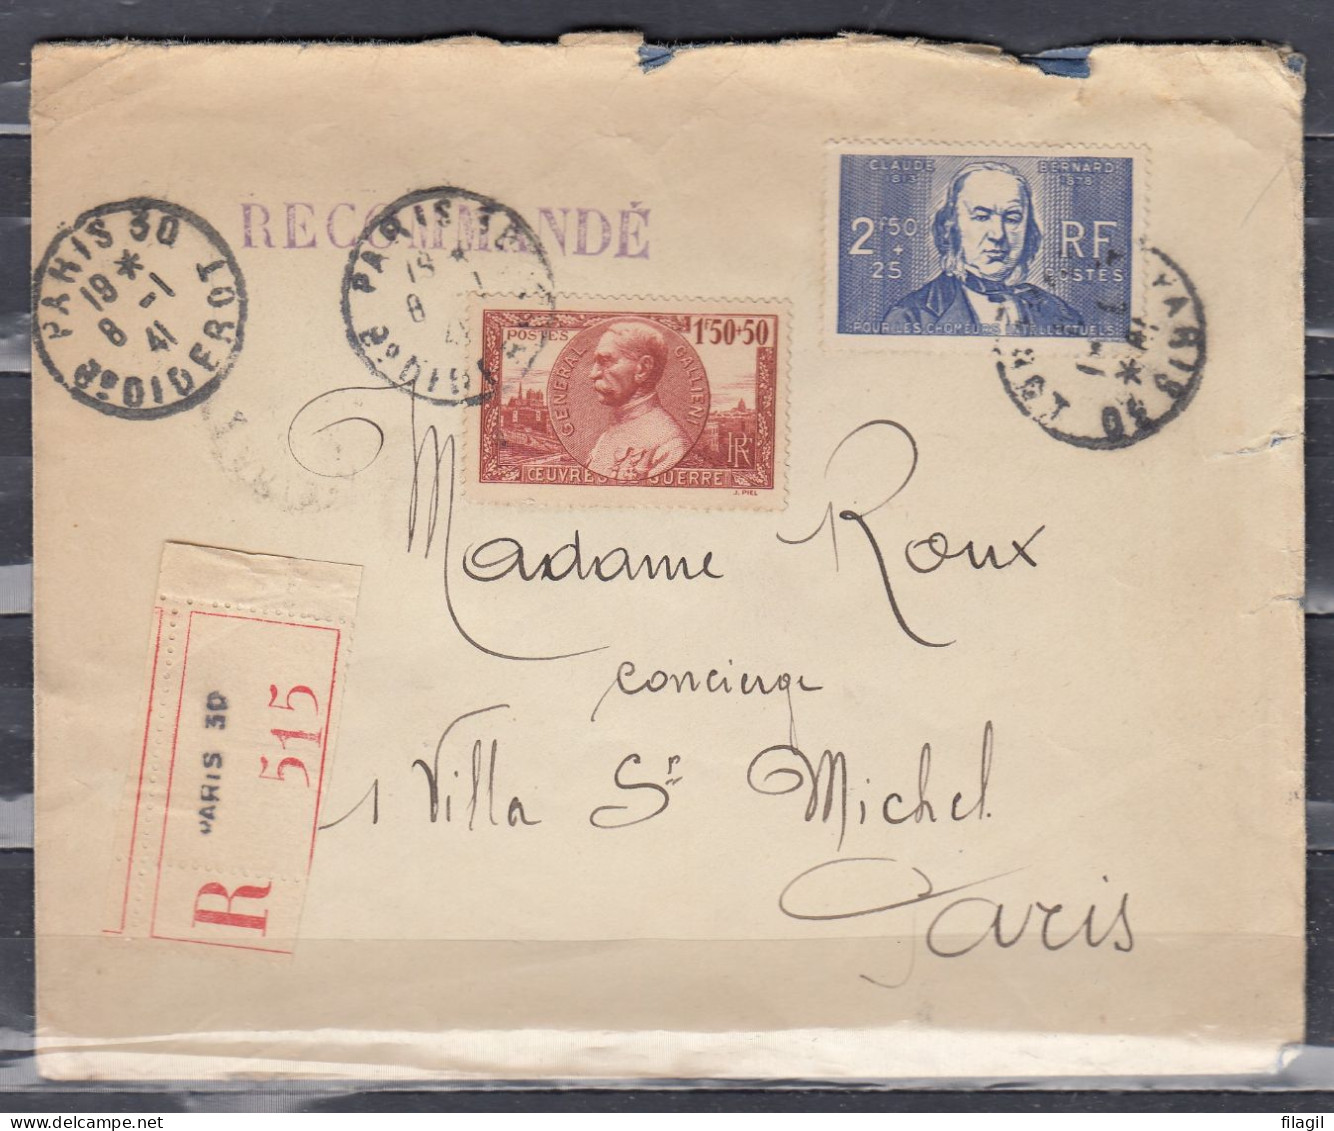 RECOMMANDÉ
PARIS 30
19 *
8 -1
41
Bᵈ DIDEROT
PARIS 30
19 *
8 1
41
CLAUDE BERNARD
1813 1878
2F50
+
25
RF
POSTES
POUR LES CHOMEURS INTELLECTUELS
PARIS 30
POSTES
1F50+50
GENERAL GALLIENI
RF
ŒUVRES DE GUERRE
J. PIEL
Madame Roux
concierge
1 Villa St Michel
Paris
R PARIS 30
515
filagil